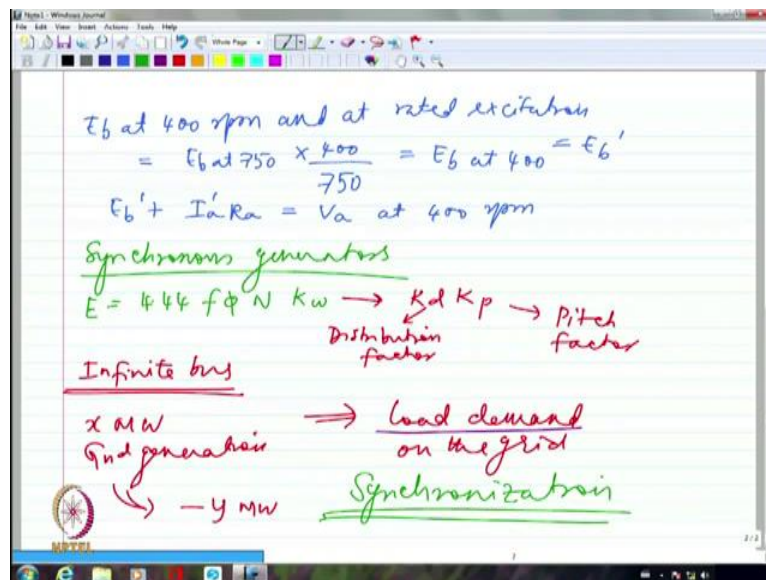 Note1 - Windows Journal
File Edit View Insert Actions Tools Help
Whole Page
B I
Eb at 400 rpm and at rated excitation
= Eb at 750 × 400/750 = Eb at 400 = Eb'
Eb' + Ia'Ra = Va at 400 rpm
Synchronous generators
E = 4.44 f φ N Kw → Kd Kp → Pitch factor
Distribution factor
Infinite bus
x MW ⇒ Load demand
Grid generation on the grid
→ - y MW Synchronization
NPTEL
2/2